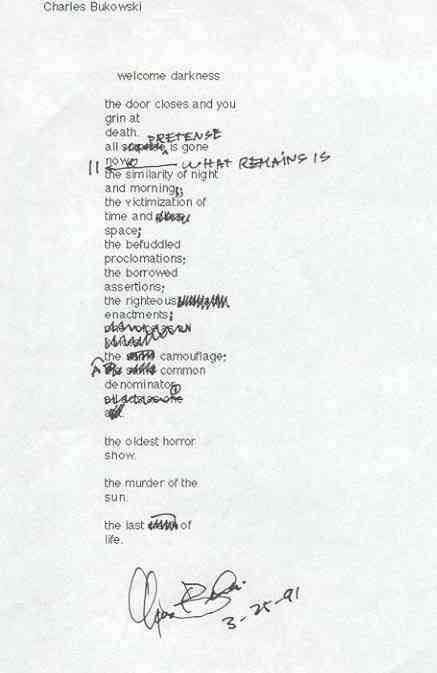 Charles Bukowski
welcome darkness
the door closes and you
grin at
death.
PRETENSE
all is gone
now
WHAT REMAINS IS
the similarity of night
and morning;
the victimization of
time and
space;
the befuddled
proclomations;
the borrowed
assertions;
the righteous
enactments;
the camouflage;
common
denominator
the oldest horror
show.
the murder of the
sun.
the last of
life.
3-25-91